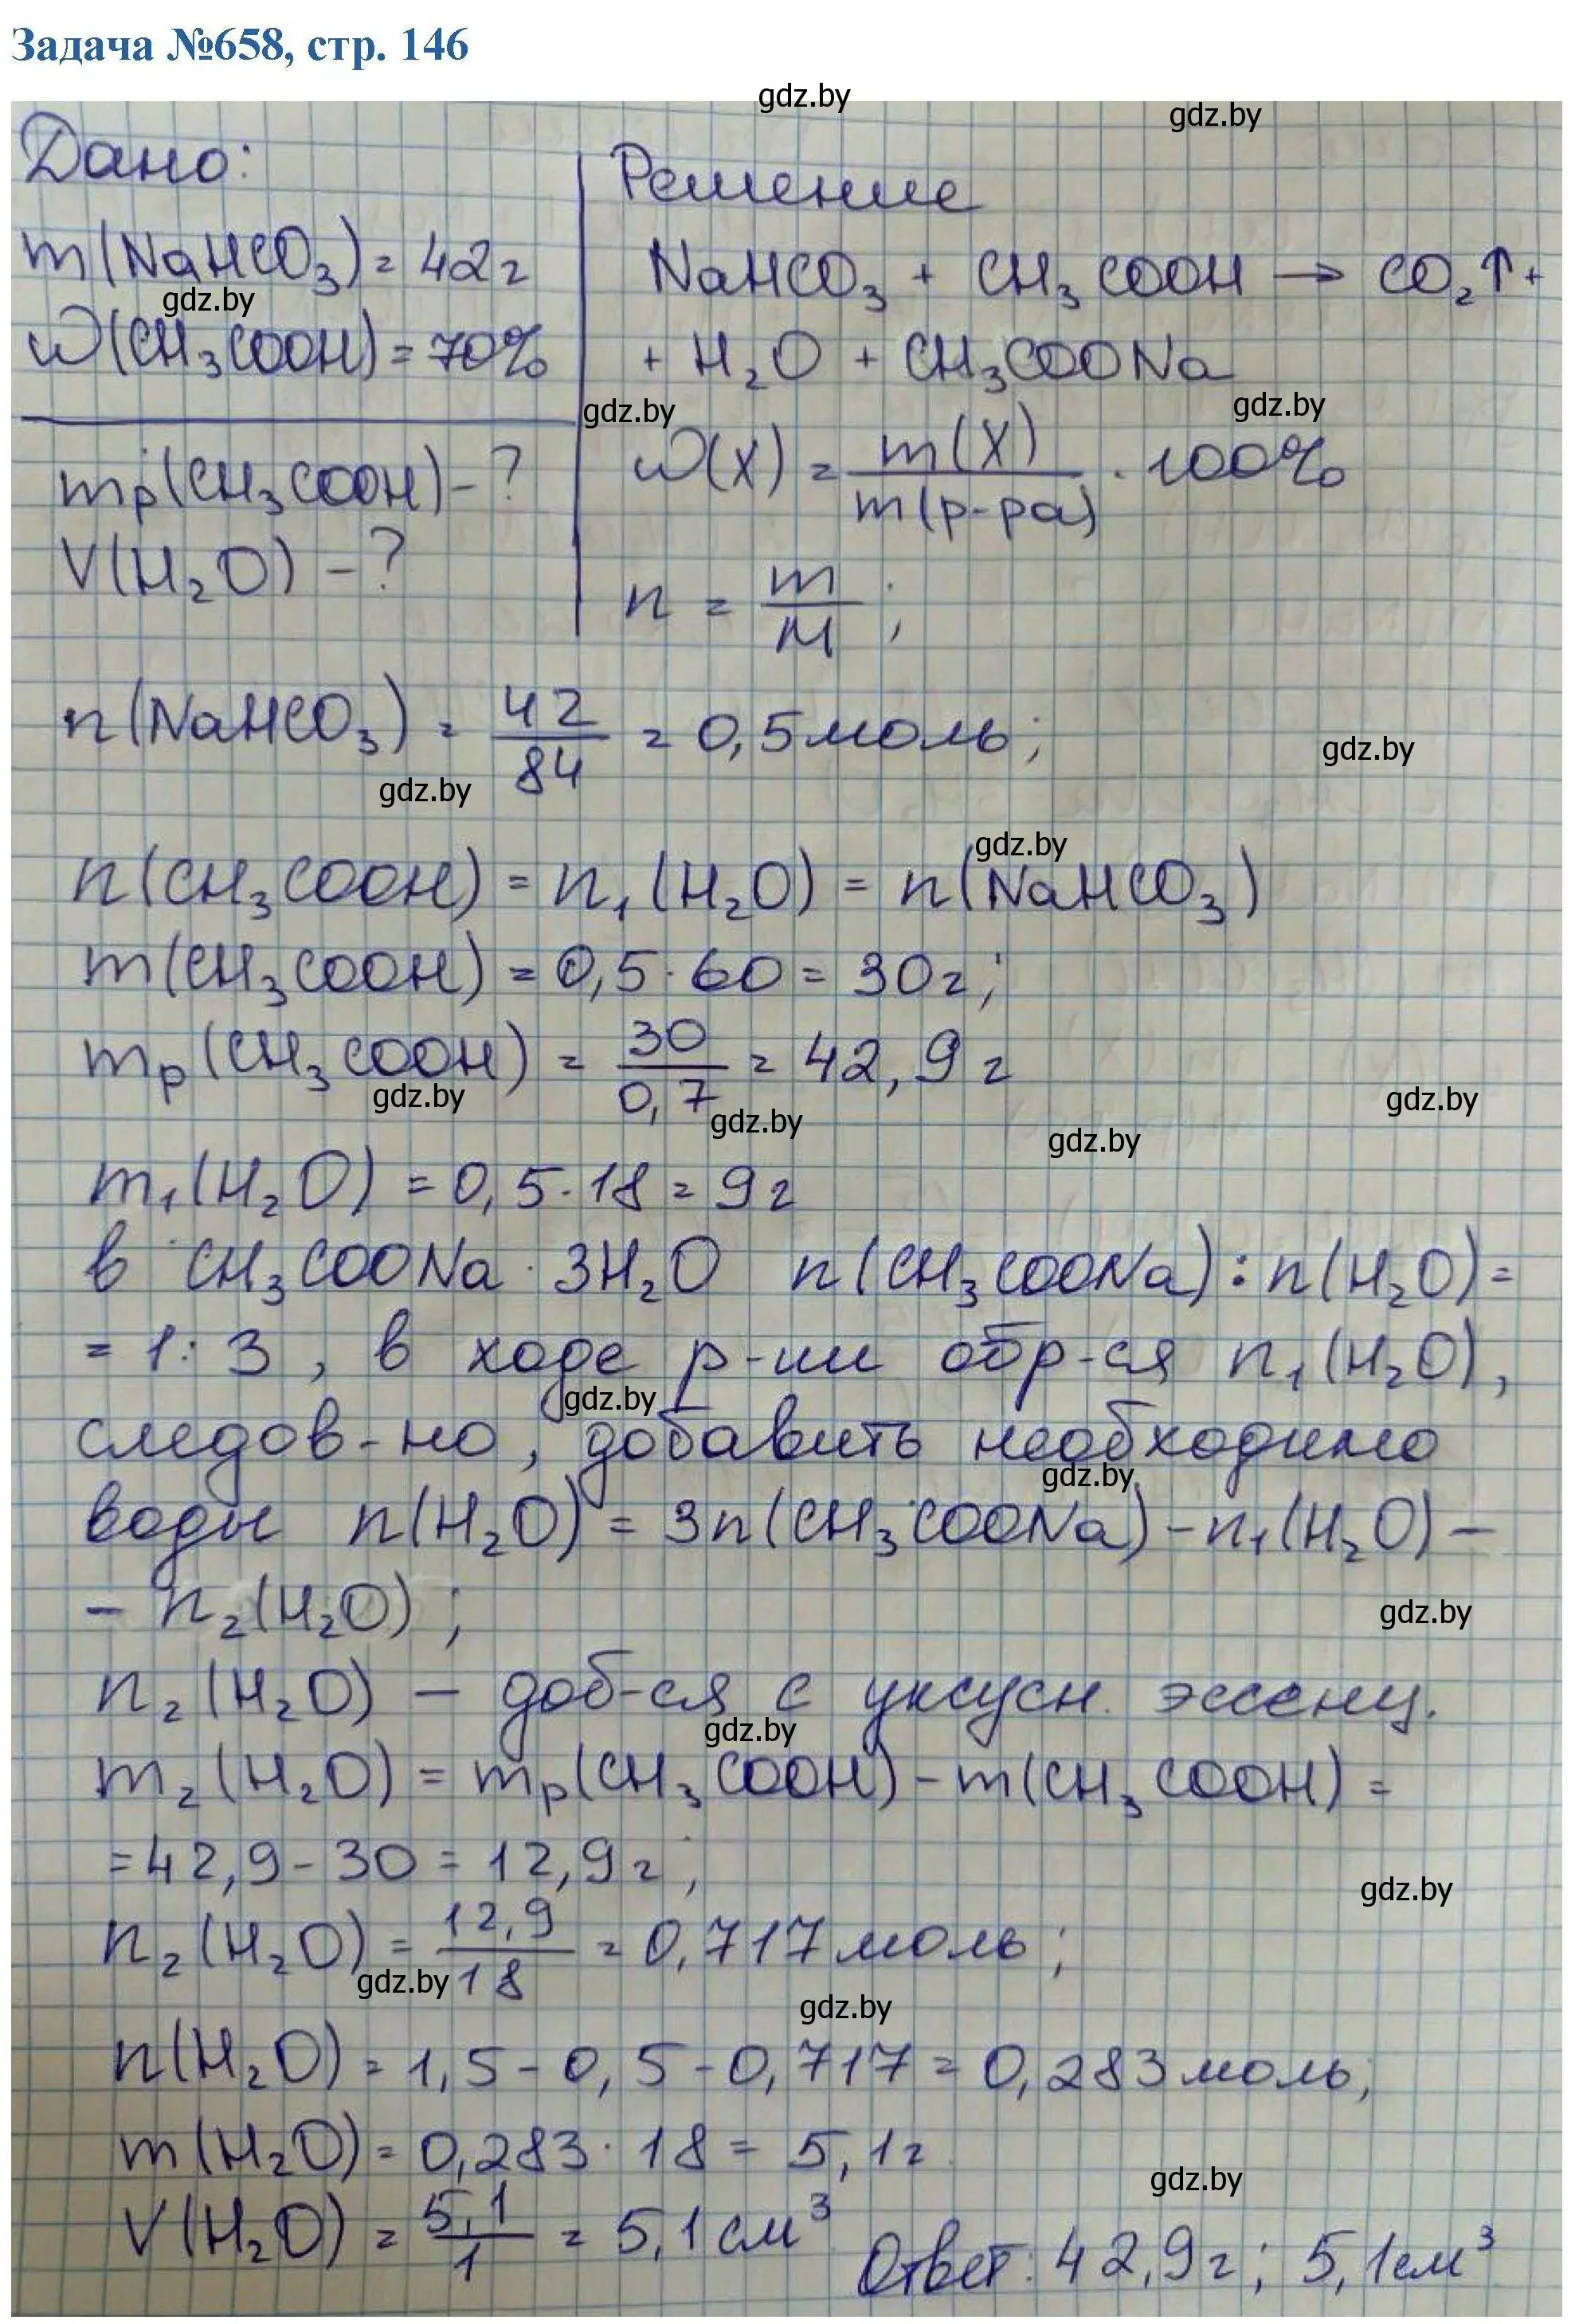 Задача №658, стр. 146
gdz.by
gdz.by
Дано:
m(NaHCO₃) = 42г
gdz.by
w(CH₃COOH) = 70%
mр(CH₃COOH) - ?
V(H₂O) - ?
Решение
NaHCO₃ + CH₃COOH → CO₂↑ +
+ H₂O + CH₃COONa
gdz.by
gdz.by
w(X) = m(X) / m(р-ра) · 100%
n = m / M ;
n(NaHCO₃) = 42 / 84 = 0,5 моль;
gdz.by
gdz.by
gdz.by
n(CH₃COOH) = n₁(H₂O) = n(NaHCO₃)
m(CH₃COOH) = 0,5 · 60 = 30г;
mр(CH₃COOH) = 30 / 0,7 = 42,9 г
gdz.by
gdz.by
gdz.by
gdz.by
m₁(H₂O) = 0,5 · 18 = 9г
в CH₃COONa · 3H₂O n(CH₃COONa) : n(H₂O) =
= 1 : 3, в ходе р-ии обр-ся n₁(H₂O),
gdz.by
следов-но, добавить необходимо
gdz.by
воды n(H₂O) = 3n(CH₃COONa) - n₁(H₂O) -
- n₂(H₂O);
gdz.by
n₂(H₂O) - доб-ся с уксусн. эссенц.
gdz.by
m₂(H₂O) = mр(CH₃COOH) - m(CH₃COOH) =
= 42,9 - 30 = 12,9г;
gdz.by
n₂(H₂O) = 12,9 / 18 = 0,717 моль;
gdz.by
gdz.by
n(H₂O) = 1,5 - 0,5 - 0,717 = 0,283 моль;
m(H₂O) = 0,283 · 18 = 5,1г
gdz.by
V(H₂O) = 5,1 / 1 = 5,1 см³
Ответ: 42,9г; 5,1см³